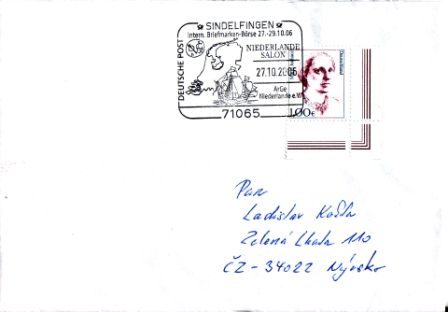 SINDELFINGEN
Intern. Briefmarken-Börse 27.-29.10.06
DEUTSCHE POST
NIEDERLANDE
SALON
27.10.2006
ArGe
Niederlande e.V.
71065
Deutschland
100€
Pan
Ladislav
Zelená Lhota 110
ČZ-34022 Nýrsko